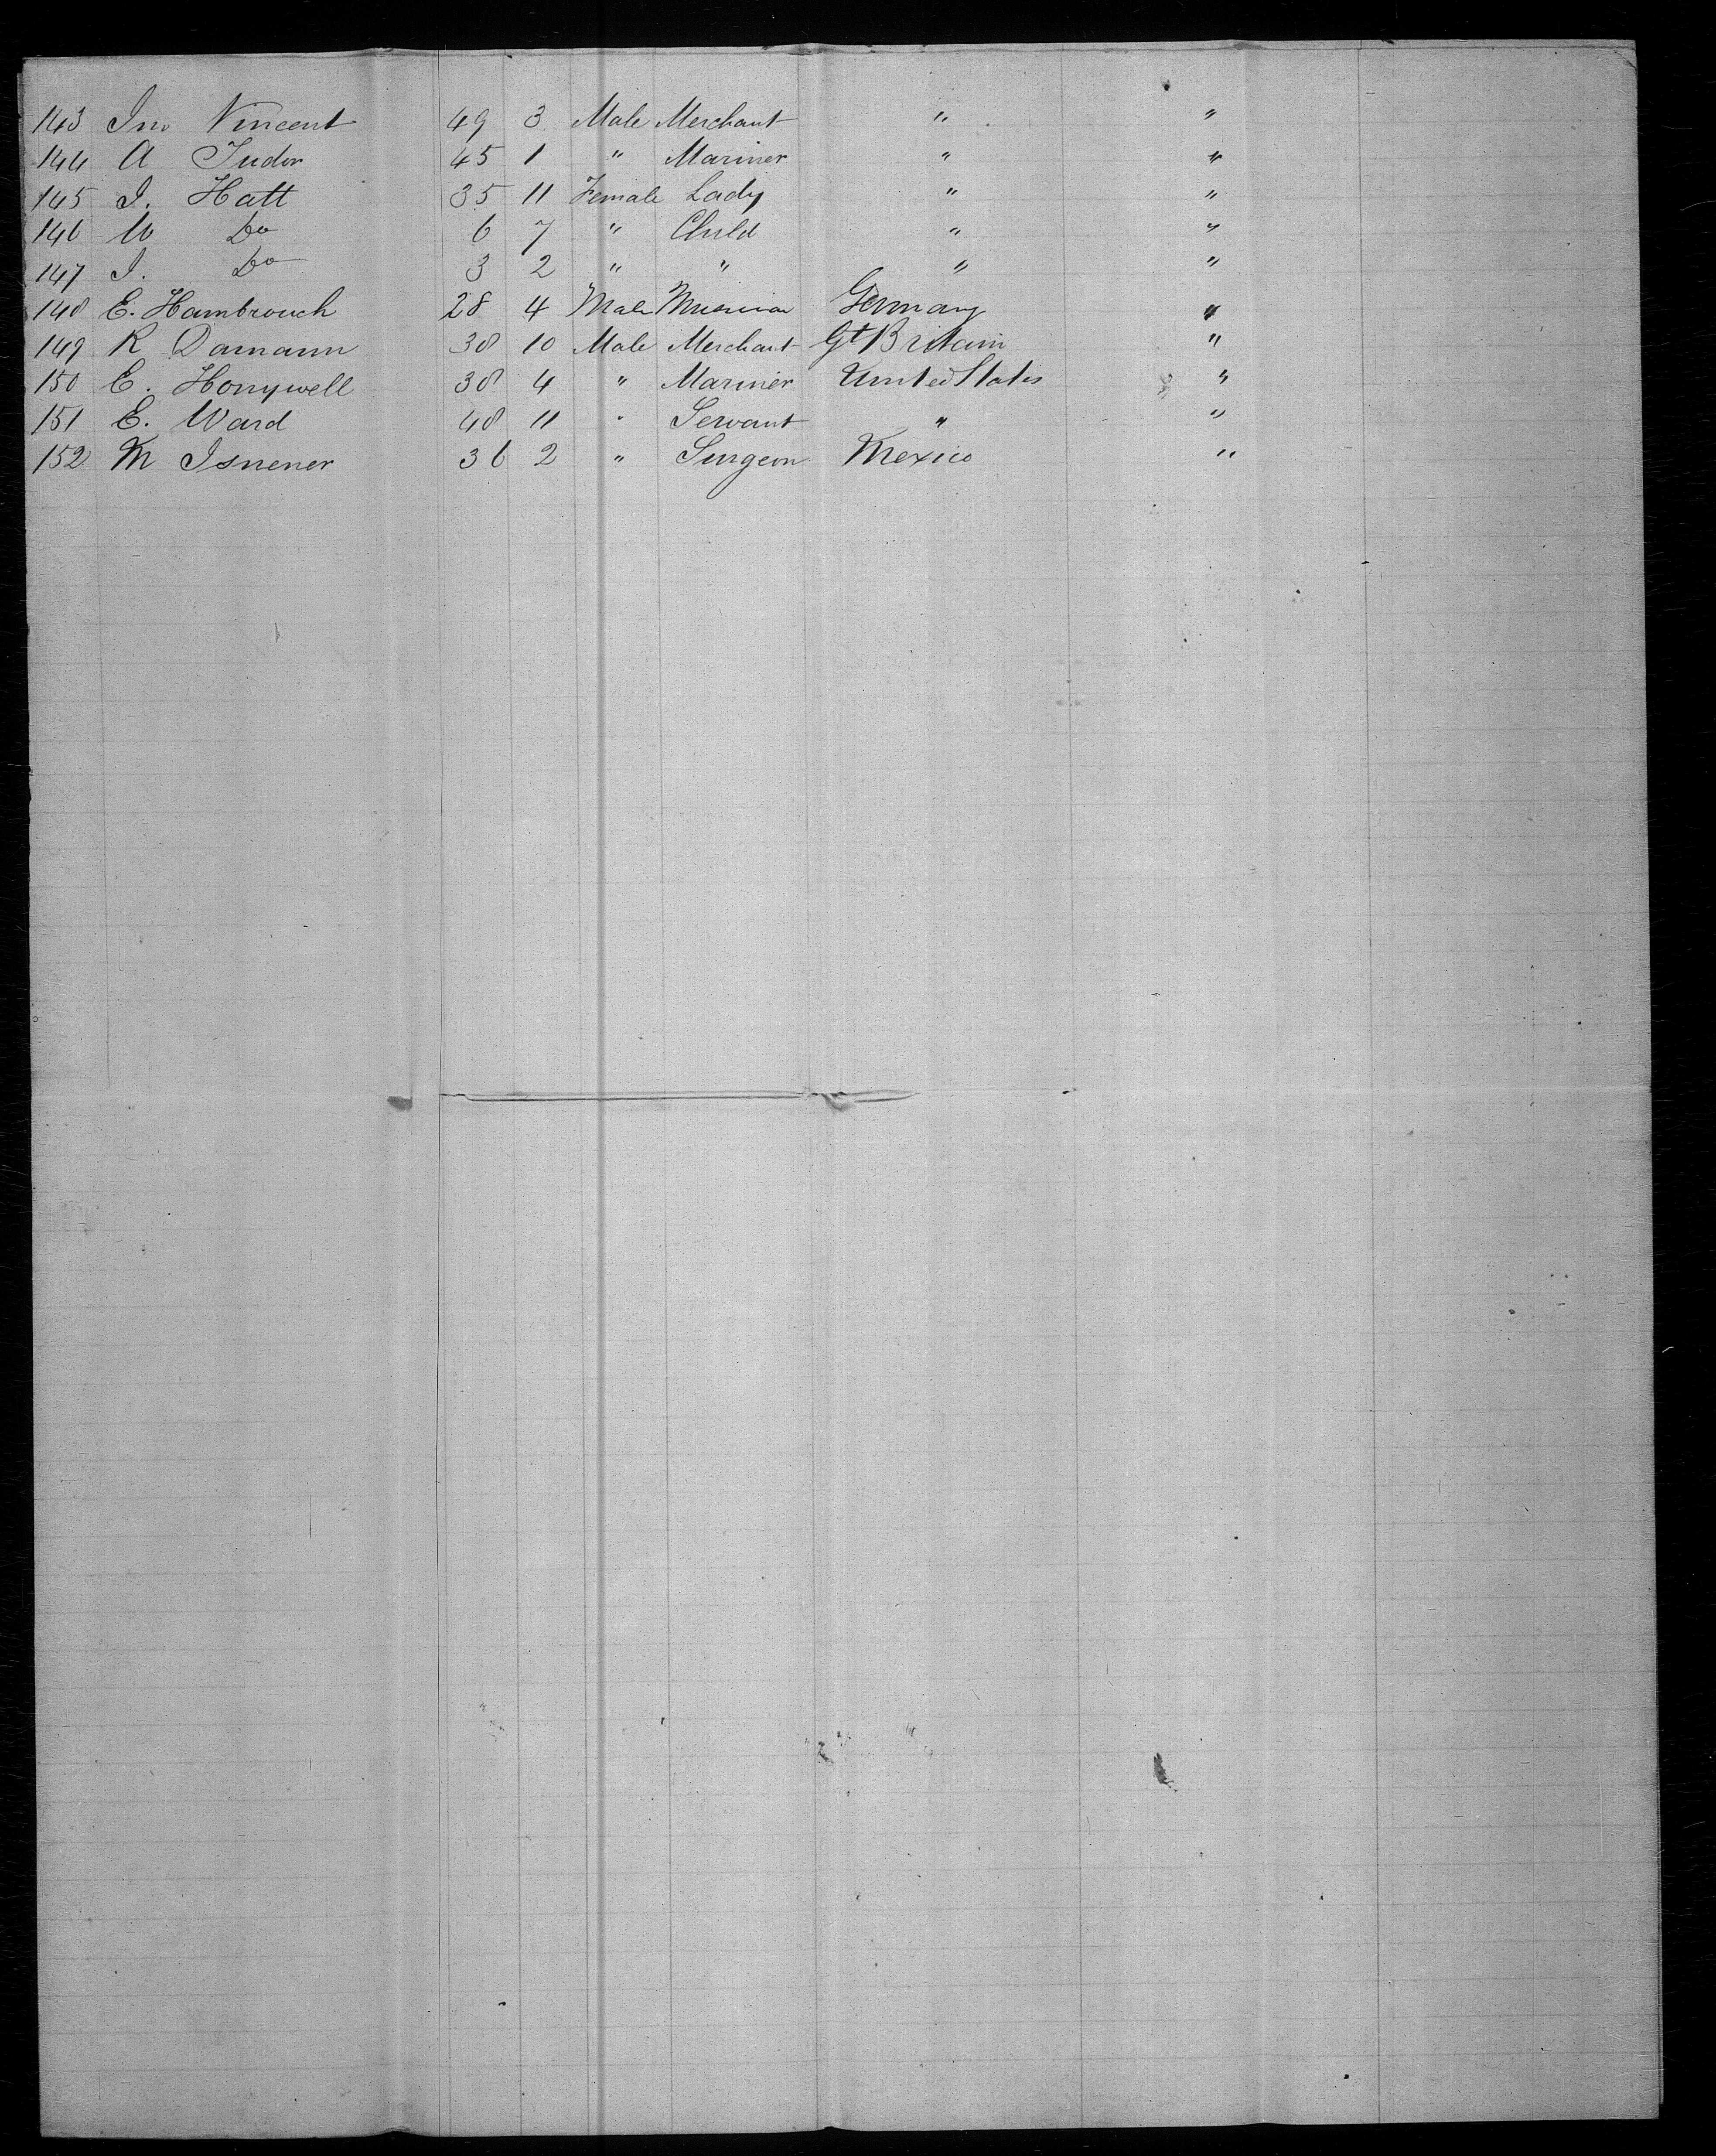 143 Jno Vincent 49 3 Male Merchant " "
144 A Tudor 45 1 " Mariner " "
145 I. Hatt 35 11 Female Lady " "
146 W Do 6 7 " Child " "
147 I. Do 3 2 " " " "
148 E. Hambrouch 28 4 Male Musician Germany "
149 R Damann 38 10 Male Merchant Gt Britain "
150 E. Honywell 38 4 " Mariner United States "
151 E. Ward 48 11 " Servant " "
152 M Isnener 36 2 " Surgeon Mexico "